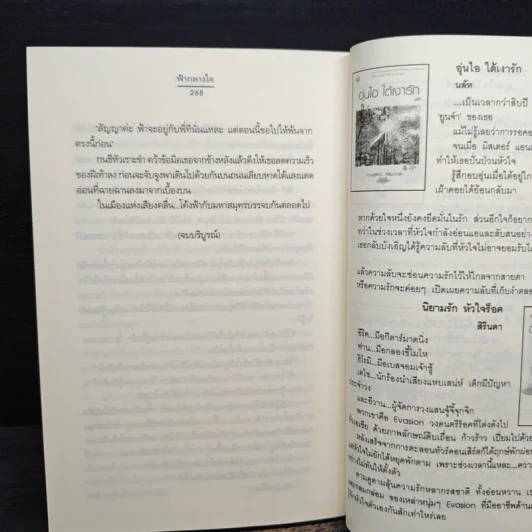 ฟ้ากลางใจ
268
"สัญญาค่ะ ฟ้าจะอยู่กับพี่ที่นั่นแหละ แต่ตอนนี้ขอไปให้พ้นจาก
ตรงนี้ก่อน"
กนธีหัวเราะขำ คว้าข้อมือเธอจากข้างหลังแล้วดึงให้เธอลดความเร็ว
ของฝีเท้าลง ก่อนจะจับจูงพาเดินไปด้วยกันบนถนนเลียบหาดใต้แสงแดด
อ่อนที่ฉายฉานลงมาจากเบื้องบน
ในเมืองแห่งเสียงคลื่น...โค้งฟ้ากับมหาสมุทรบรรจบกันตลอดไป
(จบบริบูรณ์)
อุ่นไอ ใต้เงารัก
อุ่นไอ ใต้เงารัก
นลัท
...เป็นเวลากว่าสิบปี
ของเธอ
แม้ไม่รู้เลยว่าการรอค
จนเมื่อ มิสเตอร์ แอน
ทำให้เธอปั่นป่วนหัวใจ
รู้สึกอบอุ่นเมื่อได้อยู่ใก
เฝ้าคอยได้ย้อนกลับมา
หากด้วยใจหนึ่งยังคงยึดมั่นในรัก ส่วนอีกใจก็อยาก
ทว่าในช่วงเวลาที่หัวใจกำลังอ่อนแอและสับสนอย่าง
เธอกลับบังเอิญได้รู้ความลับที่หัวใจไม่อาจยอมรับได้
แล้วความลับจะซ่อนความรักไว้ให้ไกลจากสายตา
หรือความรักจะค่อยๆ เปิดเผยความลับที่เก็บงำตลอ
นิยามรัก หัวใจร็อค
สิรินดา
ซีริค...มือกีตาร์มาดนิ่ง
ฟาน...มือกลองขี้โมโห
ฮิโรมิ...มือเบสจอมเจ้าชู้
เตโช...นักร้องนำเสียงแหบเสน่ห์ เด็กมีปัญหา
ประจำวง
และอีวาน...ผู้จัดการวงแสนจู้จี้จุกจิก
พวกเขาคือ Evasion วงดนตรีร็อคที่โด่งดังไป
ด้วยภาพลักษณ์ดิบเถื่อน ก้าวร้าว เปี่ยมไปด้วย
หลังเสร็จจากการตะลอนทัวร์คอนเสิร์ตก็ได้ฤกษ์พักผ่อน
หัวใจไม่ยักได้หยุดพักตาม เพราะช่วงเวลานี้แหละ...ความ
อย่างไม่ทันให้ตั้งตัว
ตามดูความลุ้นความรักหลากรสชาติ ทั้งอ่อนหวาน
กลมกล่อม ของเหล่าหนุ่มๆ Evasion ที่มีอาชีพด้าน
หัวใจตัวเองกันสักเท่าไหร่เลย